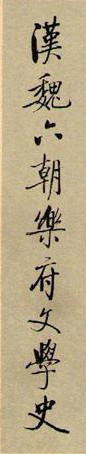 漢魏六朝樂府文學史